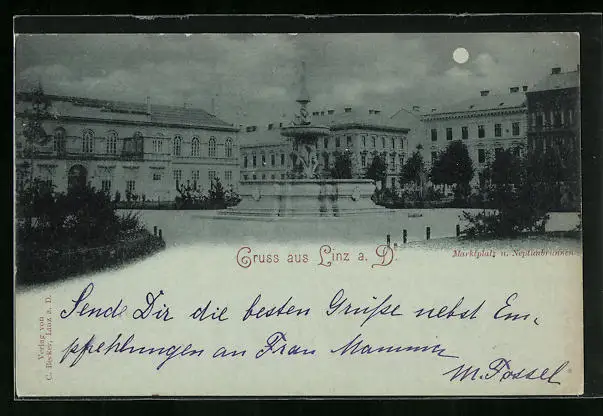 Gruss aus Linz a. D.
Marktplatz u. Neptunbrunnen
Verlag von
C. Becker, Linz a. D.
Sende Dir die besten Grüße nebst Em-
pfehlungen an Frau Mammin
M. Fossel